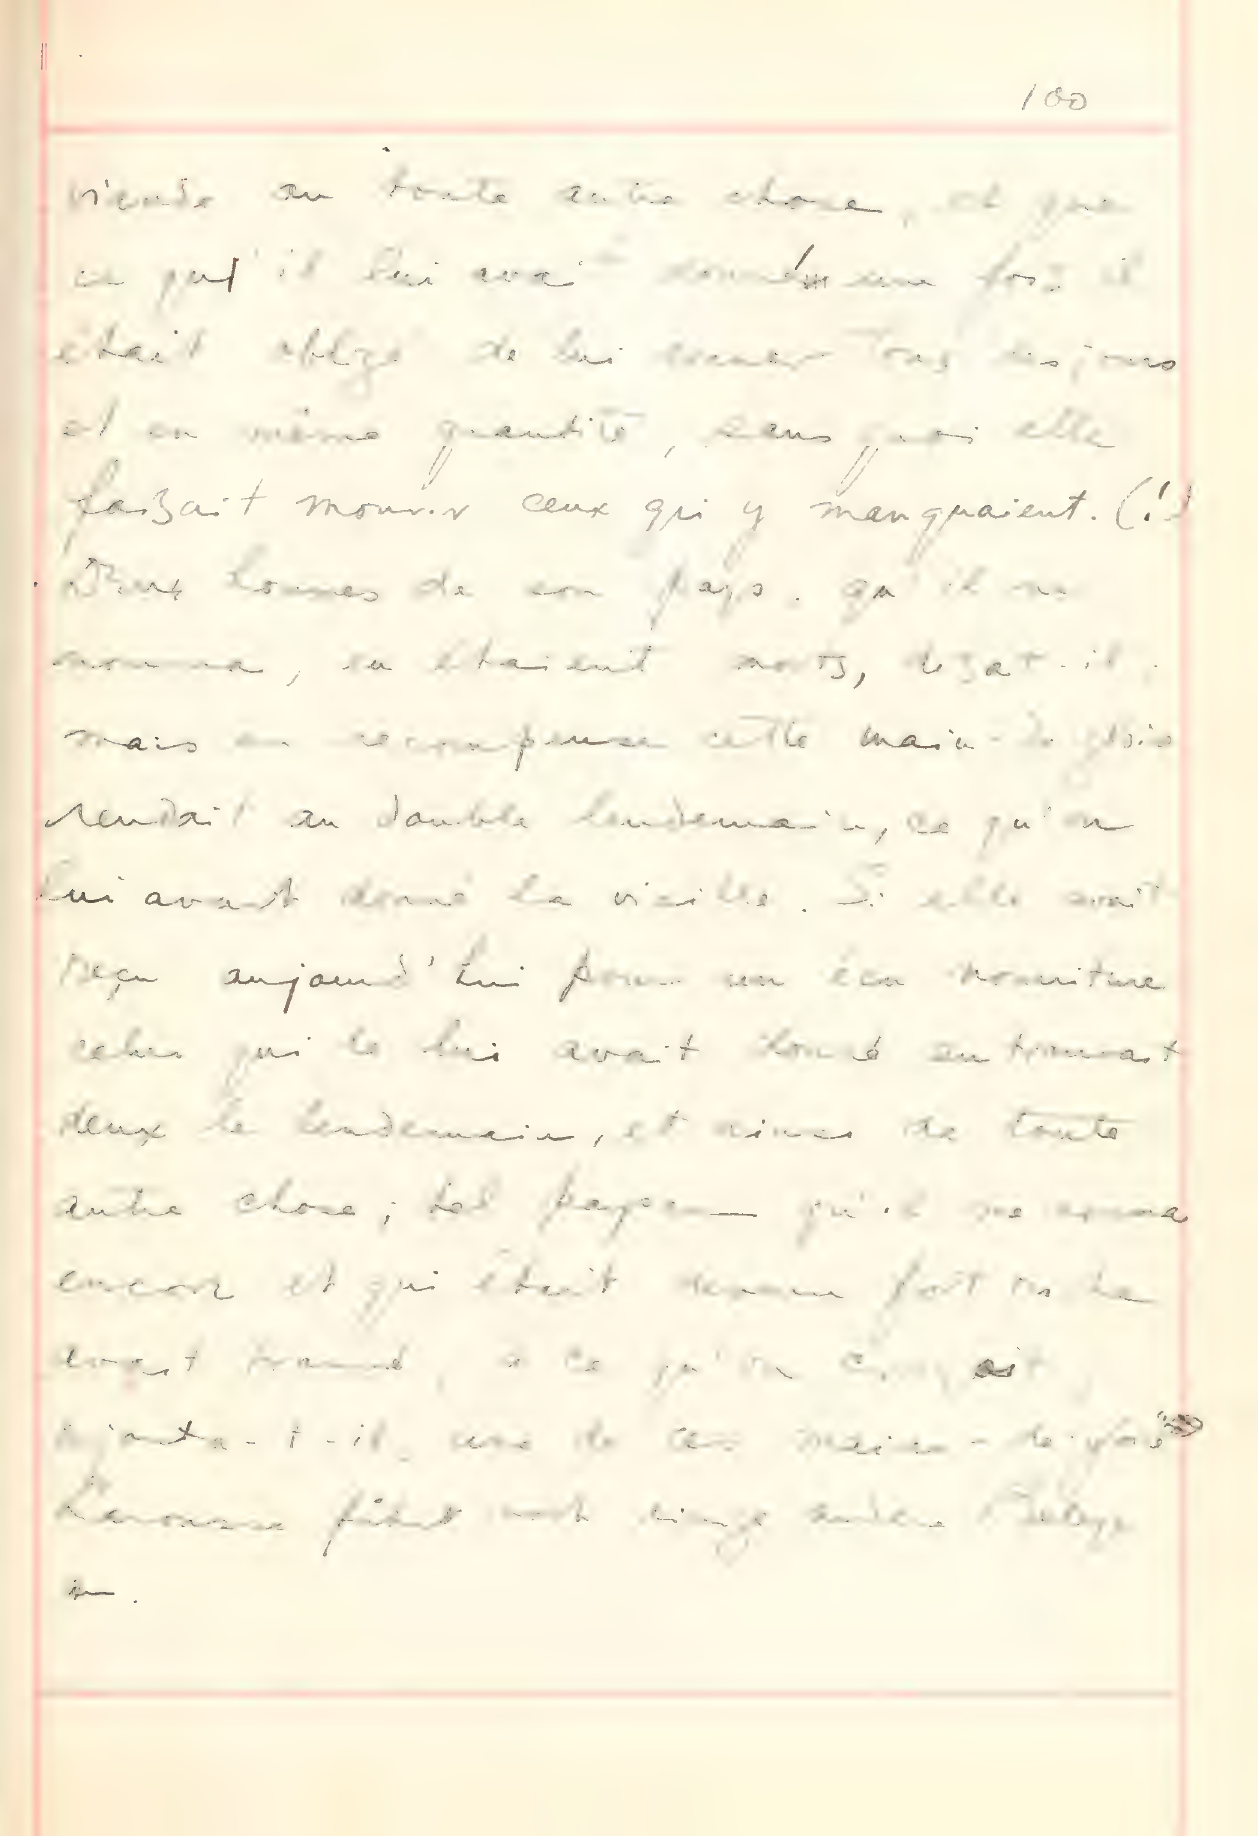 100
viande ou toute autre chose, et que
ce qu'il lui avait donné une fois il
était obligé de lui donner tous les jours
et en même quantité, sans quoi elle
faisait mourir ceux qui y manquaient. (!)
Deux hommes de son pays, qu'il me
nomma, en étaient morts, disait-il,
mais en recompense cette main-de-gloire
rendait au double lendemain, ce qu'on
lui avait donné la vieille. Si elle avait
reçu aujourd'hui pour un écu nourriture
celui qui le lui avait donné en trouvait
deux le lendemain, et ainsi de toute
autre chose; tel paysan qu'il me nomma
encore et qui était devenu fort riche
avait trouvé, à ce qu'on croyait,
ajouta-t-il, une de ces mains-de-gloire